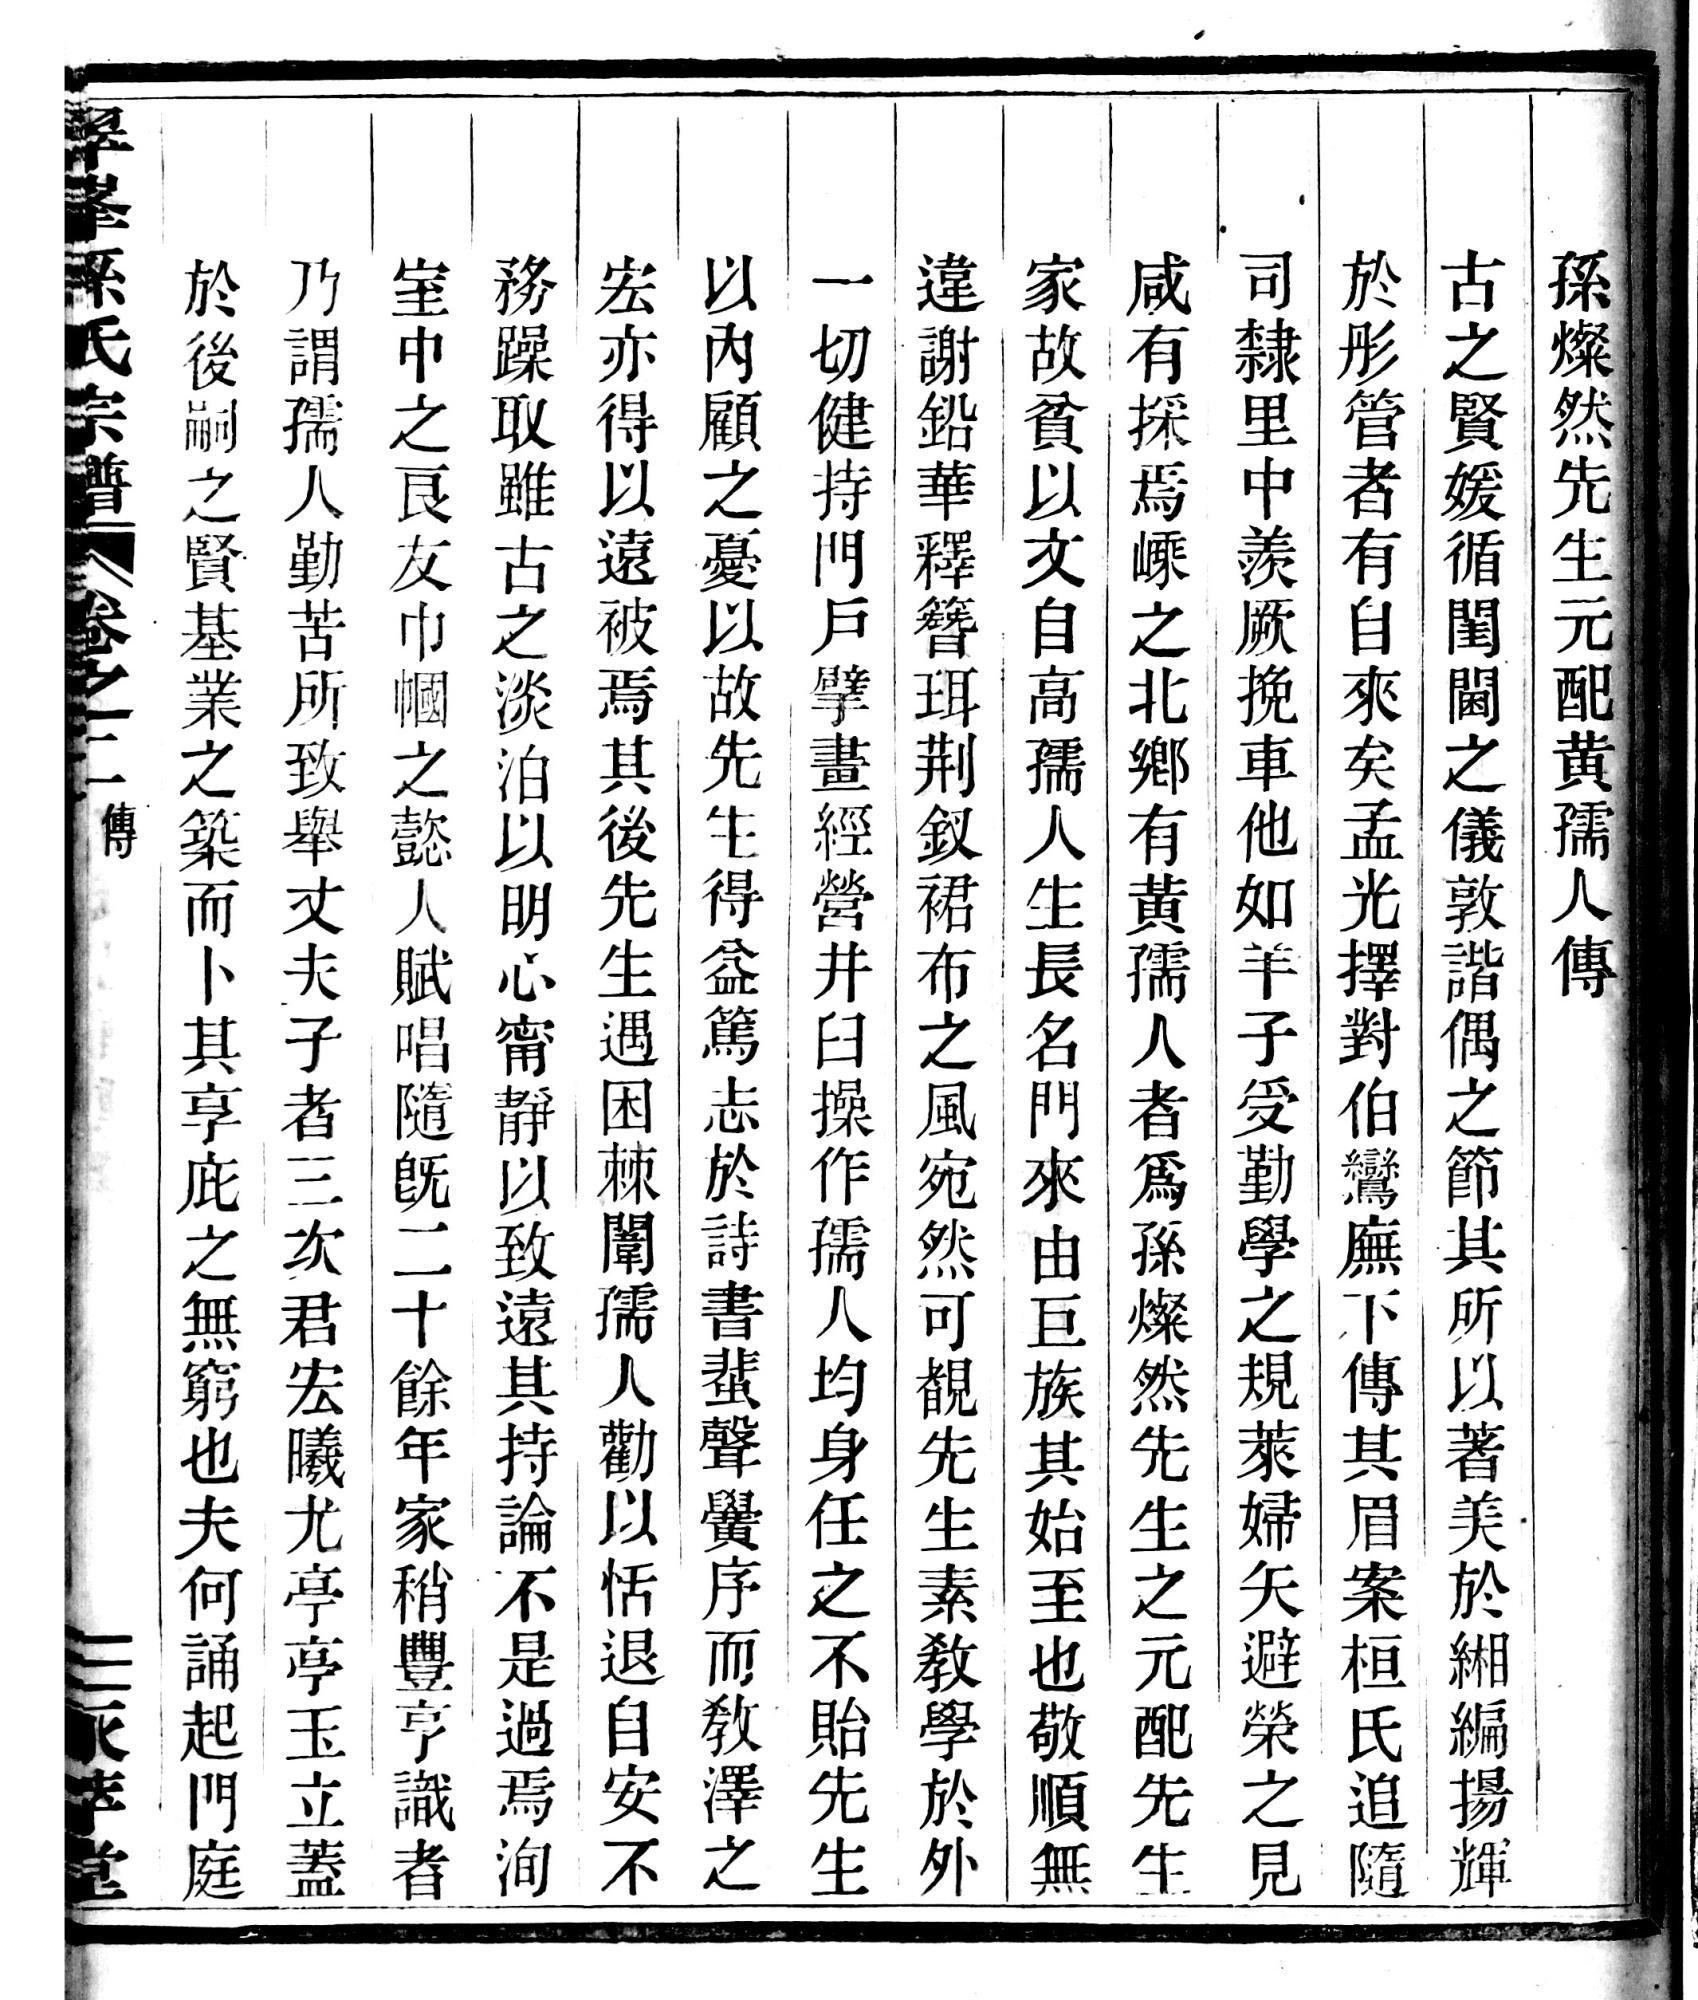 孫燦然先生元配黃孺人傳
古之賢媛循閨閫之儀敦諧偶之節其所以著美於緗編揚輝
於彤管者有自來矣孟光擇對伯鸞廡下傳其眉案桓氏追隨
司隸里中羨厥挽車他如羊子受勤學之規萊婦矢避榮之見
咸有採焉嵊之北鄉有黃孺人者爲孫燦然先生之元配先生
家故貧以文自高孺人生長名門來由巨族其始至也敬順無
違謝鉛華釋簪珥荆釵裙布之風宛然可覩先生素教學於外
一切健持門戶擘畫經營井臼操作孺人均身任之不貽先生
以內顧之憂以故先生得益篤志於詩書蜚聲黌序而教澤之
宏亦得以遠被焉其後先生遇困棘闈孺人勸以恬退自安不
務躁取雖古之淡泊以明心甯靜以致遠其持論不是過焉洵
室中之良友巾幗之懿人賦唱隨旣二十餘年家稍豐亨識者
乃謂孺人勤苦所致舉丈夫子者三次君宏曦尤亭亭玉立蓋
於後嗣之賢基業之築而卜其享庇之無窮也夫何誦起門庭
孫氏宗譜 卷之二 傳 堂